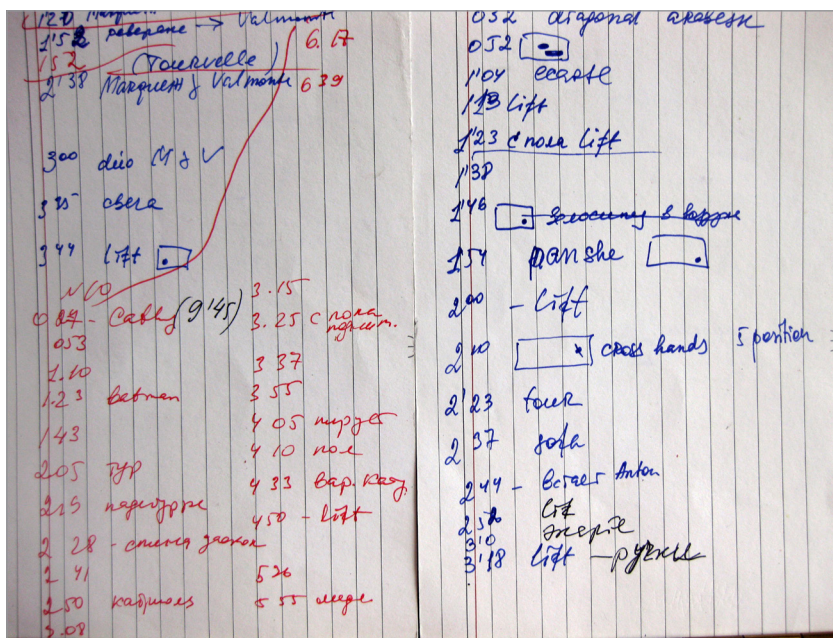 1'20 Valmont
1'52 реверанс → Valmont
152 (Tourvelle) 6.17
2'38 Marquett & Valmont 639
300 duo M & V
3 25 свеча
3 44 lift
N 10
0 27 - Cabby (9'45)
053
1.10
1.23 batman
143
205 тур
215 падебурре
2 28 - спина
2 41
2 50 кабриоль
3.08
3.15
3.25 с пола поднит.
3 37
3 55
4 05 пируэт
4 10 пол
4 33 вар. Кав.
450 - lift
526
5 55 леди
052 diagonal arabesk
052
1'04 ecarte
1'13 lift
1'23 с пола lift
1'38
1'46 в воздухе
1'54 panshe
200 - lift
2 10 cross hands 5 position
2'23 tour
2 37
2 44 - встает Anton
2 52 lift
3'0
3'18 lift - ручки